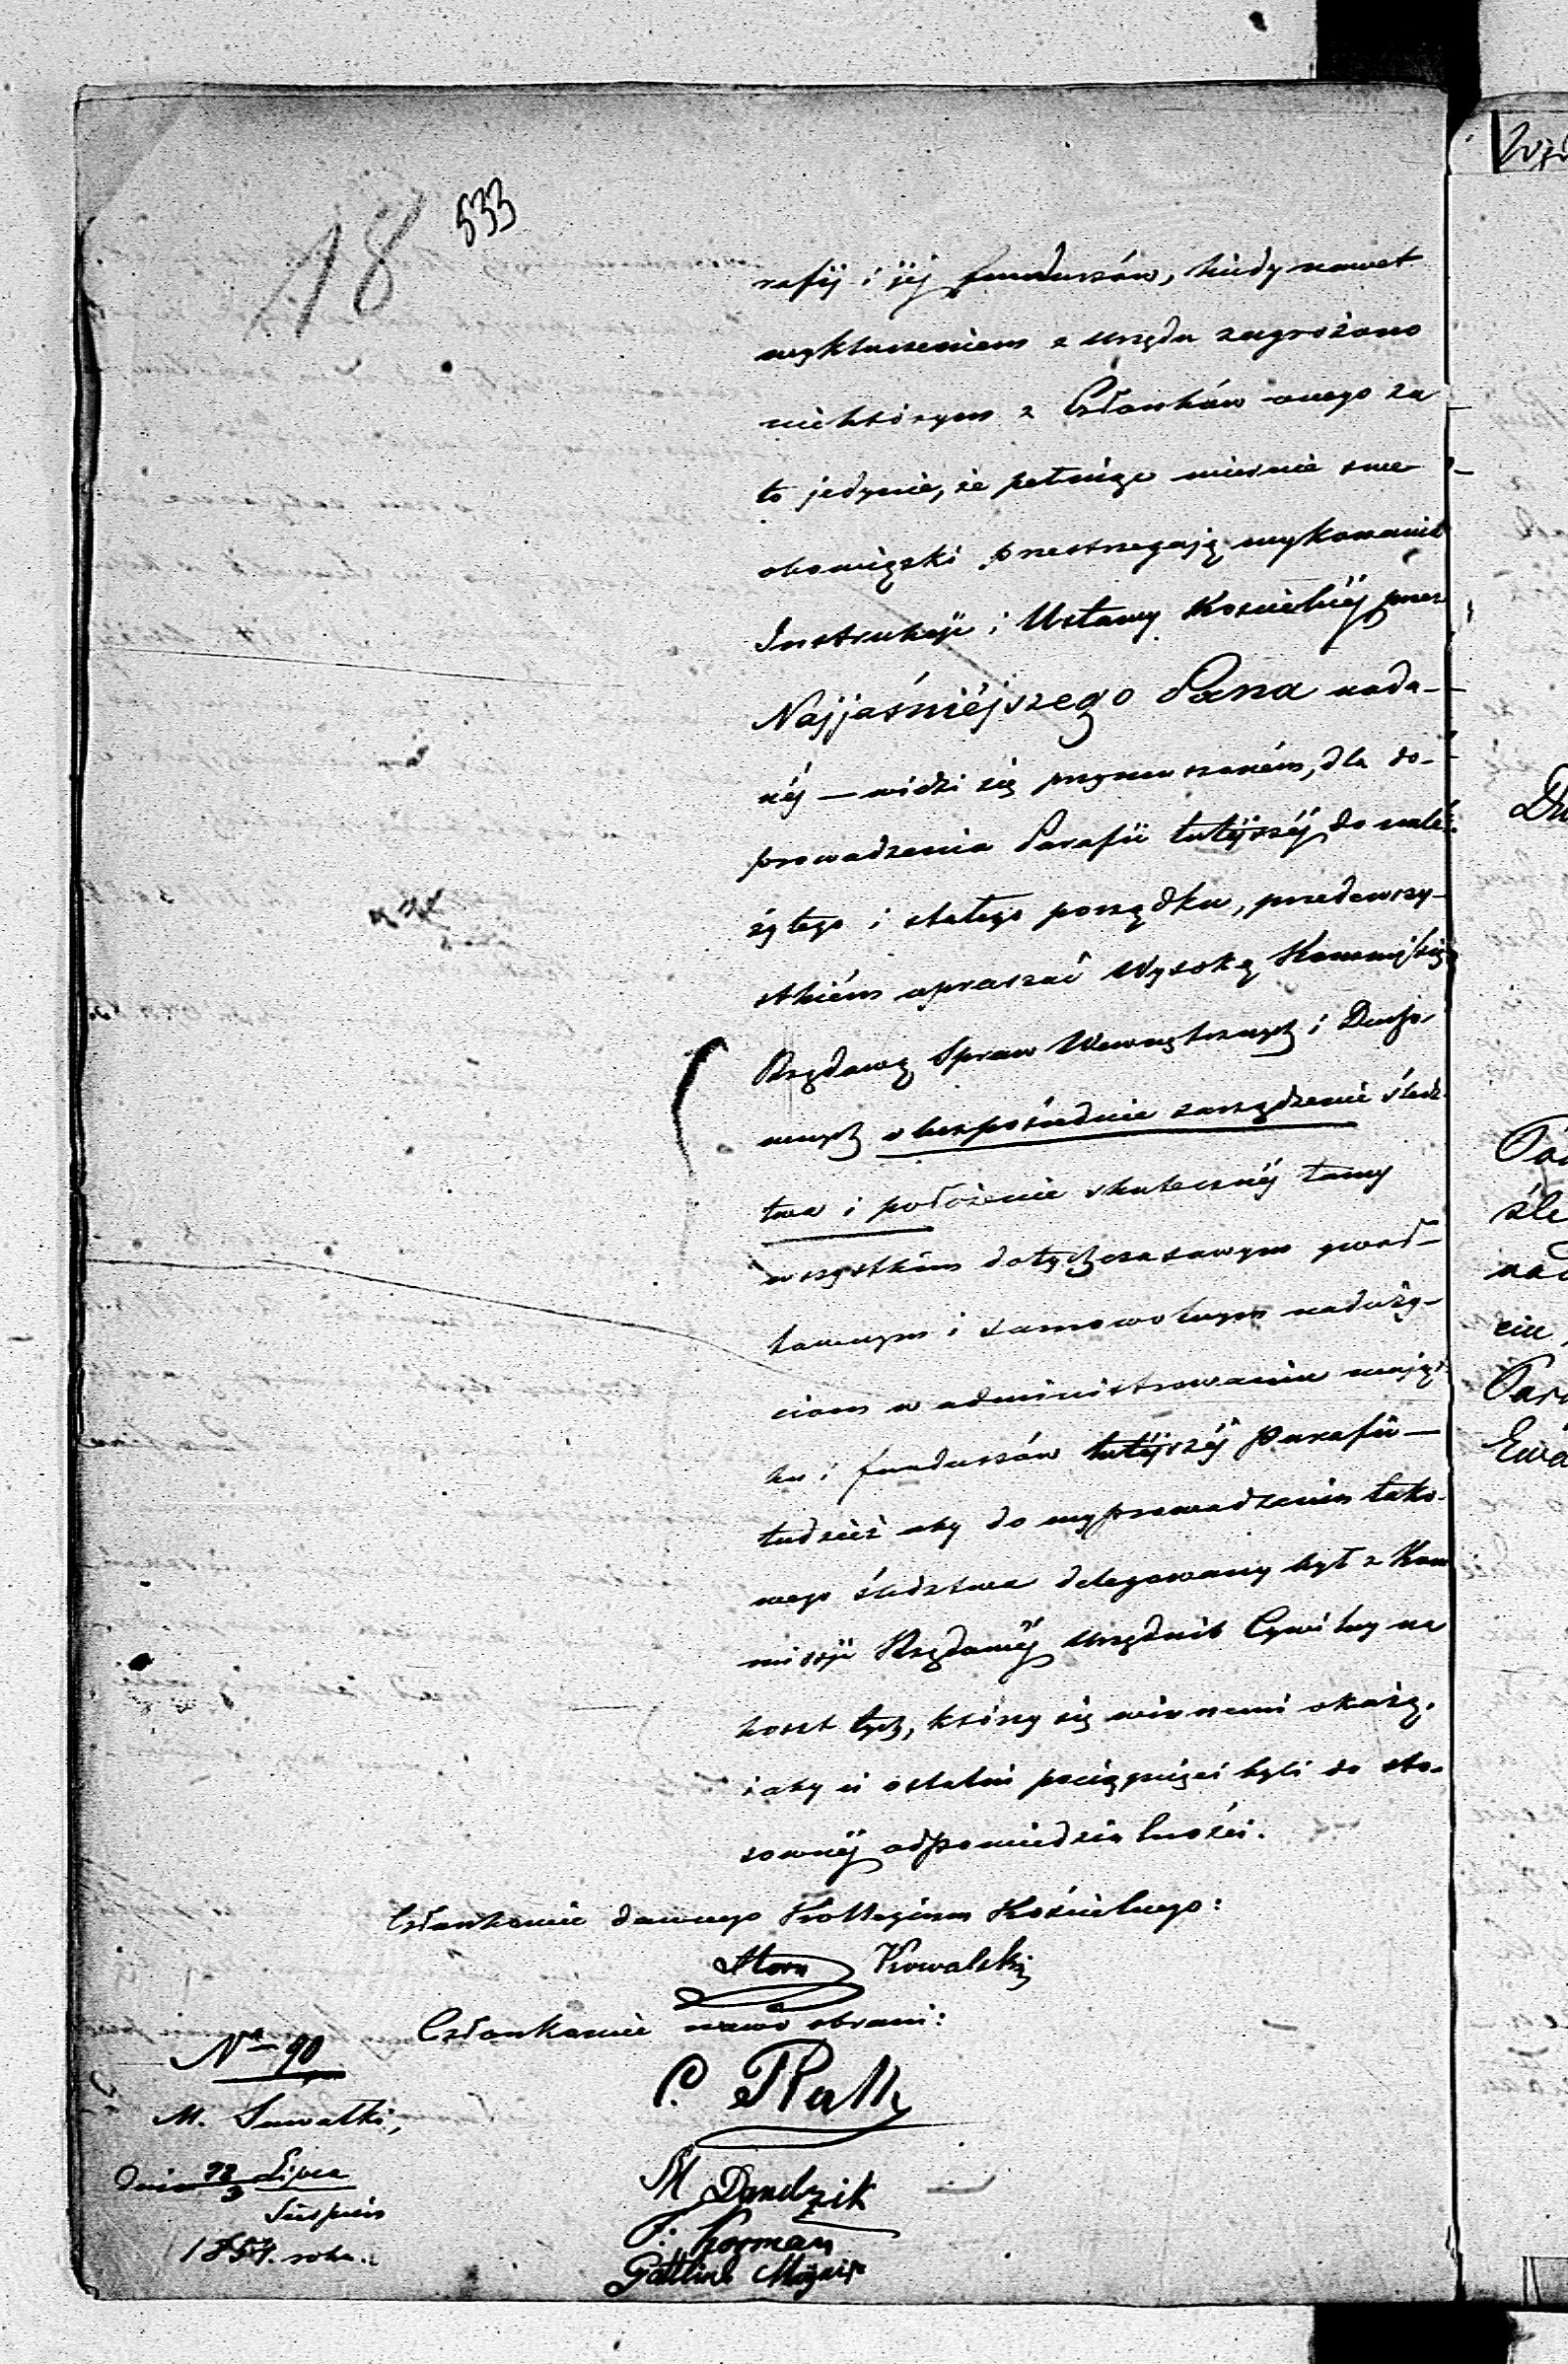 18 533
rafij i jéj funduszów, kiedy nawet
wykluczeniem z urzędu zagrożono
niektórym z Członków onego za
to jedynie, że pełniąc wiernie swe
obowiązki przestrzegają wykonania
Instrukcji i Ustawy Kościelnéj przez
Najjaśniéjszego Pana nada-
néj — widzi się przymuszoném, dla do-
prowadzenia Parafii tutéjszéj do nale-
żytego i stałego porządku, przedewszy-
stkiém upraszać Wysoką Kommissją
Rządową Spraw Wewnętrznych i Ducho-
wnych o bezpośrednie zarządzenie śledz-
twa i położenie skutecznéj tamy
wszystkim dotychczasowym gwał-
townym i samowolnym naduży-
ciom w administrowaniu mająt-
ku i funduszów tutéjszéj Parafii —
tudzież aby do wyprowadzenia tako-
wego śledztwa delegowany był z Kom
missji Rządowéj Urzędnik Cywilny na
koszt tych, którzy się winnemi okażą,
i aby ci ostatni pociągnięci byli do sto-
sownéj odpowiedzialności.
Członkowie dawnego Kollegium Kościelnego:
Horn Kowalski
Członkowie nowo obrani:
No 90
C. 
M. Suwałki,
dnia 22 Lipca
3 Sierpnia
1854. roku.
M Dandzik
Korman
Gottlieb